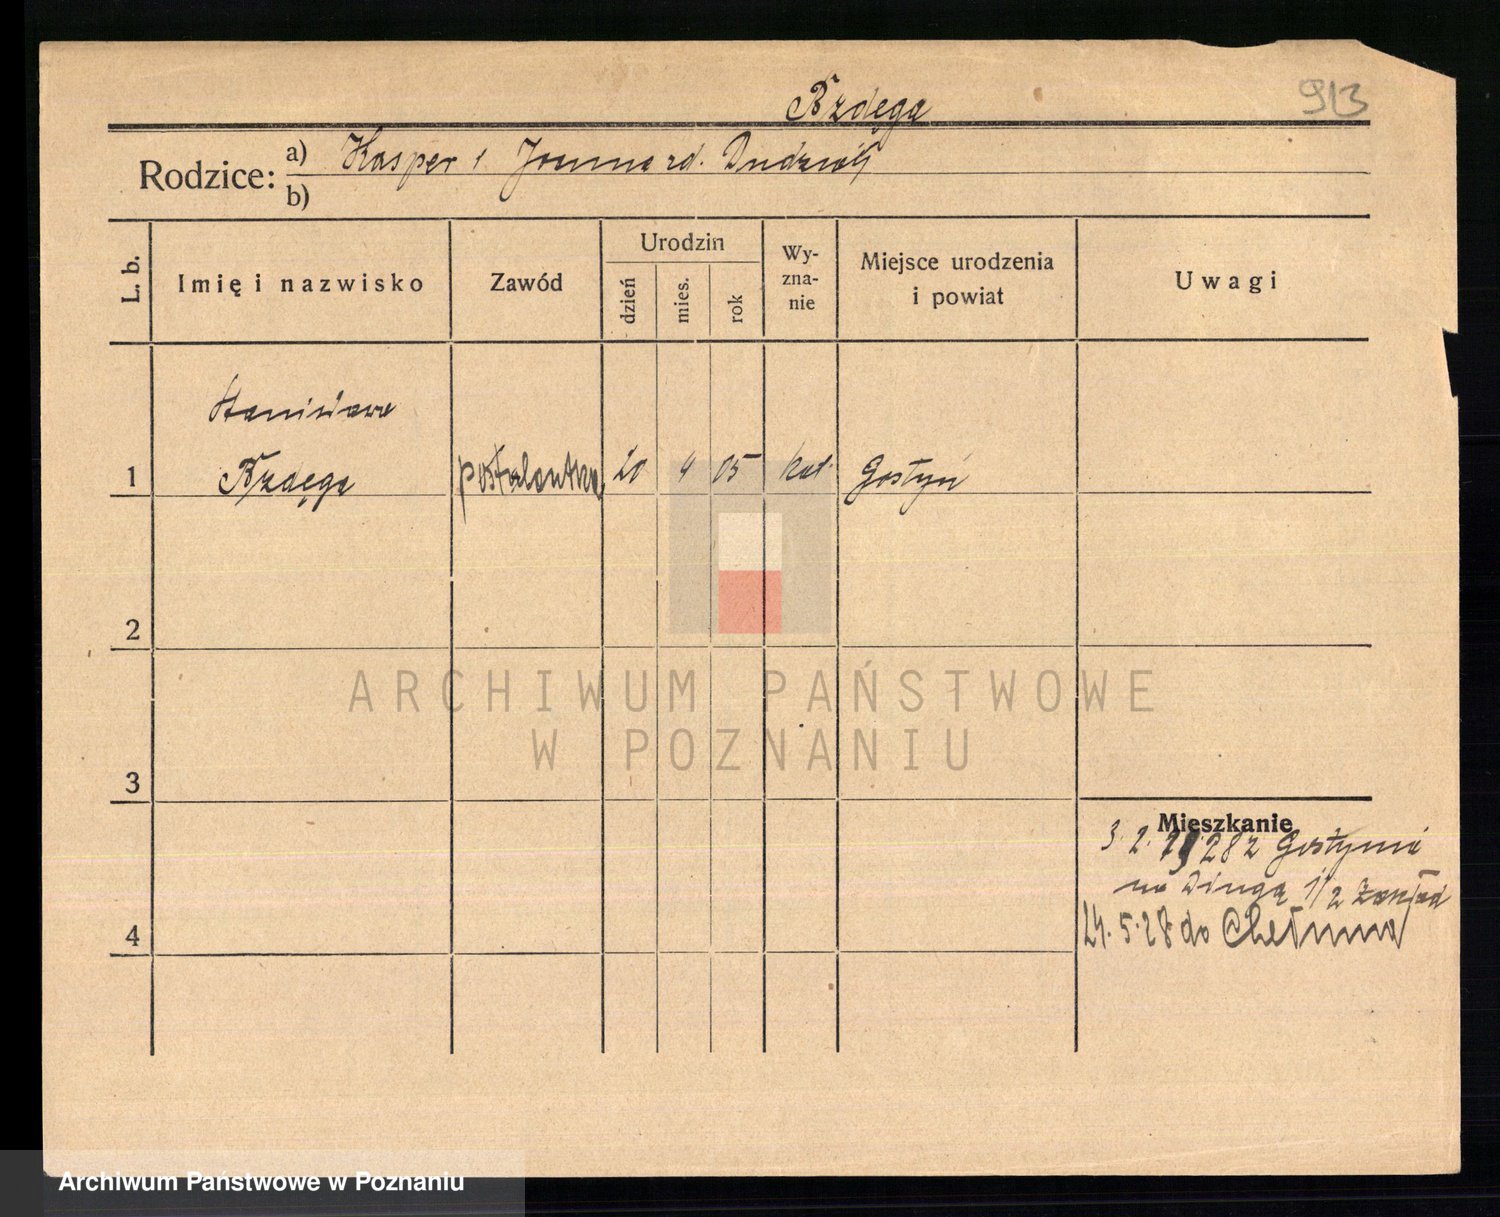 913
Bzdęga
Rodzice: a) Kasper i Joanna rd. Dudziak
b)
L. b.
Imię i nazwisko
Zawód
Urodzin
dzień
mies.
rok
Wy-
zna-
nie
Miejsce urodzenia
i powiat
Uwagi
Stanisława
1 Bzdęga postulantka 20 4 05 kat. Gostyń
2
3
4
Mieszkanie
3.2. 28 z Gostynia
na Długą 1/2 Zakład
24.5.28 do Chełmna
ARCHIWUM PAŃSTWOWE
W POZNANIU
Archiwum Państwowe w Poznaniu